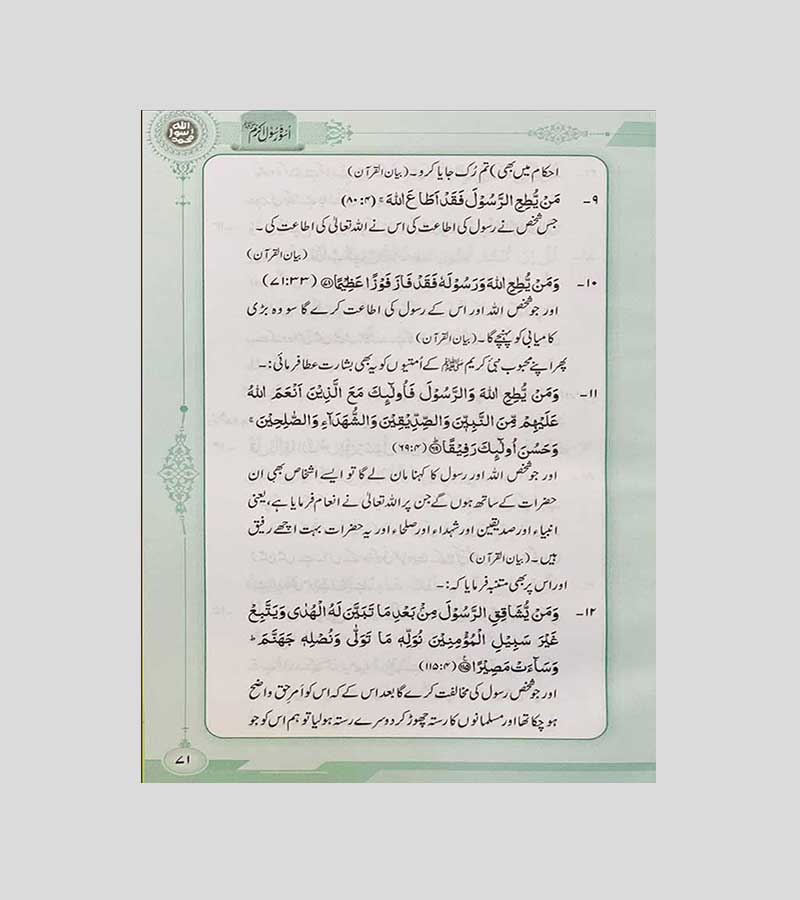 اسوۂ رسول اکرم ﷺ
احکام میں بھی) تم رُک جایا کرو۔ (بیان القرآن)
۹- مَنْ يُّطِعِ الرَّسُوْلَ فَقَدْ اَطَاعَ اللّٰهَ ۚ (۸۰:۴)
جس شخص نے رسول کی اطاعت کی اس نے اللہ تعالیٰ کی اطاعت کی۔
(بیان القرآن)
۱۰- وَمَنْ يُّطِعِ اللّٰهَ وَرَسُوْلَهٗ فَقَدْ فَازَ فَوْزًا عَظِيْمًا ﴿۷۱﴾ (۷۱:۳۳)
اور جو شخص اللہ اور اس کے رسول کی اطاعت کرے گا سو وہ بڑی
کامیابی کو پہنچے گا۔ (بیان القرآن)
پھر اپنے محبوب نبی کریم ﷺ کے اُمتیوں کو یہ بھی بشارت عطا فرمائی:-
۱۱- وَمَنْ يُّطِعِ اللّٰهَ وَالرَّسُوْلَ فَاُولٰٓئِكَ مَعَ الَّذِيْنَ اَنْعَمَ اللّٰهُ
عَلَيْهِمْ مِّنَ النَّبِيّٖنَ وَالصِّدِّيْقِيْنَ وَالشُّهَدَآءِ وَالصّٰلِحِيْنَ ۚ
وَحَسُنَ اُولٰٓئِكَ رَفِيْقًا ﴿۶۹﴾ (۶۹:۴)
اور جو شخص اللہ اور رسول کا کہنا مان لے گا تو ایسے اشخاص بھی ان
حضرات کے ساتھ ہوں گے جن پر اللہ تعالیٰ نے انعام فرمایا ہے، یعنی
انبیاء اور صدیقین اور شہداء اور صلحاء اور یہ حضرات بہت اچھے رفیق
ہیں۔ (بیان القرآن)
اور اس پر بھی متنبہ فرمایا کہ:-
۱۲- وَمَنْ يُّشَاقِقِ الرَّسُوْلَ مِنْۢ بَعْدِ مَا تَبَيَّنَ لَهُ الْهُدٰى وَيَتَّبِعْ
غَيْرَ سَبِيْلِ الْمُؤْمِنِيْنَ نُوَلِّهٖ مَا تَوَلّٰى وَنُصْلِهٖ جَهَنَّمَ ؕ
وَسَآءَتْ مَصِيْرًا ﴿۱۱۵﴾ (۱۱۵:۴)
اور جو شخص رسول کی مخالفت کرے گا بعد اس کے کہ اس کو امرِ حق واضح
ہو چکا تھا اور مسلمانوں کا رستہ چھوڑ کر دوسرے رستہ ہو لیا تو ہم اس کو جو
۷۱